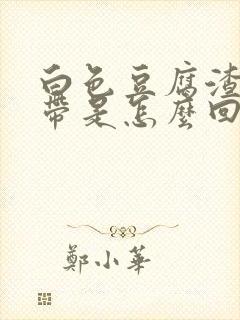 白色豆腐渣
帶是怎麼回
鄭小華